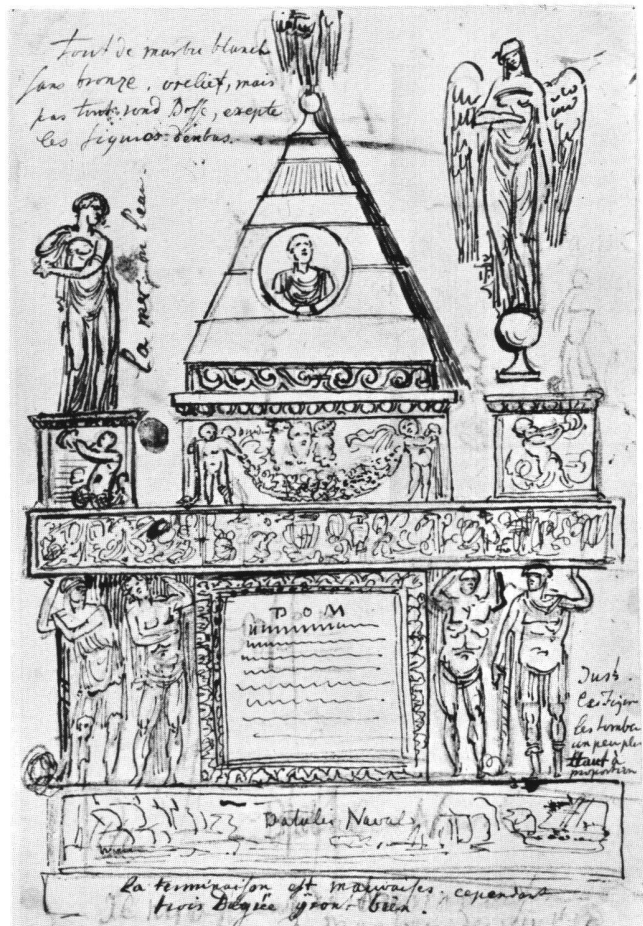 tout de marbre blanch
sans bronze, oreliet, mais
pas tout rond Bosse, exepte
les figures denbas.
la mer ou l'eau
D O M
Batalie Naval
les tombe
un peu plus
Haut a
proportion
la terminaison est mauvaises. cependant
trois Degrée y ront bien.